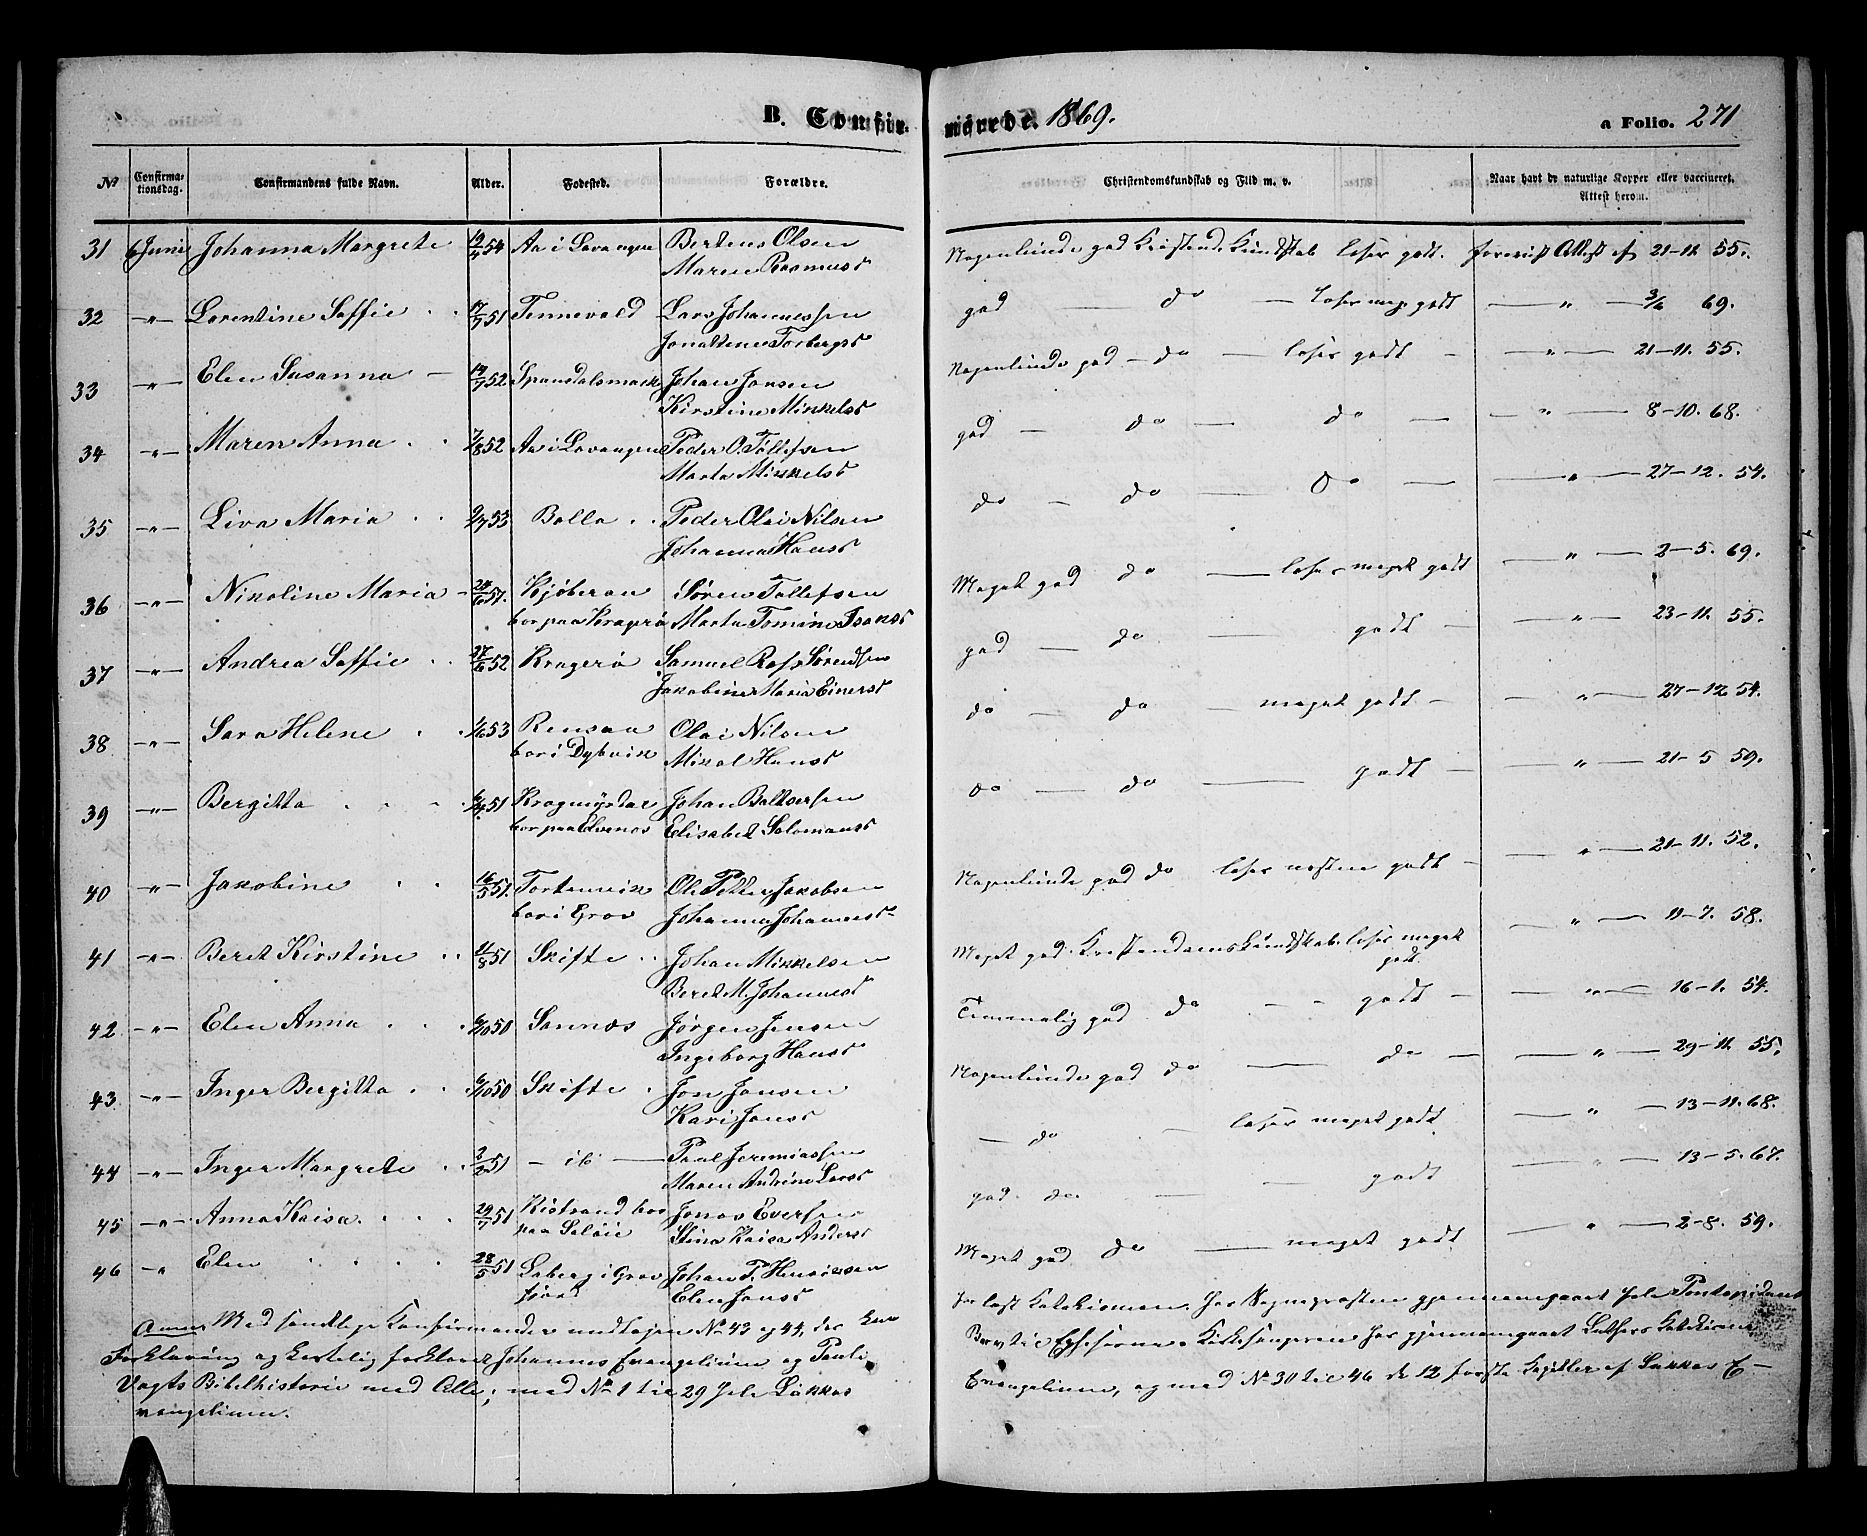 B. Confirmerede. 1869.
a Folio. 271
No Confirmationsdag. Confirmandens fulde Navn. Alder. Fødested. Forældre. Christendomskundskab og Flid m. v. Naar havt de naturlige Kopper eller vaccineret. Attest herom.
31 6 Juni Johanna Margrete 54 Aa i Lavangen Berteus Olsen Nogenlunde god Kristend. Kundskab læser godt. forevist Attest af 21-11 55.
Maren Rasmusd
32 -"- Lorentine Soffie 17/7 51 Tennevold Lars Johannessen god — do — læser meget godt — " — 3/6 69.
Jonaltene Torbergsd
33 -"- Elen Susanna — 19/7 52 Spansdalsmark Johan Jonsen Nogenlunde god — do — læser godt — — " — 21-11. 55.
Kirstine Mikkelsd
34 -"- Maren Anna 7/8 52 Aa i Lavangen Peder O. Tollefsen god — do — do — — " — 8-10. 68.
Marta Mikkelsd
35 -"- Liva Maria 9/7 53 Bolla Peder Olai Nilsen do — do — do — — " — 27-12. 54.
Johanna Hansd
36 -"- Nikoline Maria - 24/6 51. Kjøberan Søren Tollefsen Meget god do — læser meget godt — " — 2-5. 69.
bor paa Kragerø Marta Tomine Isaksd
37 -"- Andrea Soffie 27/6 52 Kragerø Samuel Rafs Sørendsen god — do — godt — — " — 23-11. 55.
Jakobine Maria Einersd
38 -"- Sara Helene 53 Rensaa Olai Nilsen do — do — meget godt. — — " — 27-12 54.
bor i Dybvik Mikal Hansd
39 -"- Bergitta 51 Kragmyrdar Johan Baltsersen do — do — godt — — " — 21-5 59.
bor paa Elvenes Elisabet Salomonsd
40 -"- Jakobine 16/5 51. Tortenvik Ole Petter Jakobsen Nogenlunde god do læser næsten godt — — " — 21-11. 52.
bor i Grov Johanna Johannesd
41 -"- Beret Kirstine 51 Skifte Johan Mikkelsen Meget god Kristendomskundskab. læser meget godt. — " — 11-7. 58.
Beret M. Johannesd
42 -"- Elen Anna 50 Sannes Jørgen Jensen Temmelig god do - - godt — — " — 16-1. 54.
Ingeborg Hansd
43 -"- Inger Bergitta 50 Skifte Jon Jonsen Nogenlunde god do — do — — " — 29-11. 55.
Kari Jonsd
44 -"- Inger Margrete 2/2 51 - ib — Paul Jeremiassen — do — læser meget godt — " — 13-11. 68.
Maren Andrine Larsd
45 -"- Anna Kaisa. 29/7 51 Ristrand bor Jonas Eversen god. do. — — godt — " — 13-5. 67.
paa Seløie Stina Kaisa Andersd
46 -" Elen 28/5 51 Laberg i Grov Johan P. Henriksen Meget god do — meget godt — " — 2-8. 59.
fjord Elen Jonsd
Anm. Med samtlige Konfirmander undtagen No 43 og 44, der kun
har læst Katekismen, har Sognepresten gjennemgaaet hele Pontopidans
Forklaring og kortelig forklaret Johannes Evangelium og Pauli
Brev til Epheserne. Kirkesangeren har gjennemgaaet Luthers Katekisme
Vogts Bibelhistorie med Alle; med No 1 til 29 hele Lukkas
Evangelium, og med No 30 til 46 de 12 første Kapitler af Lukkas E-
vangelium.